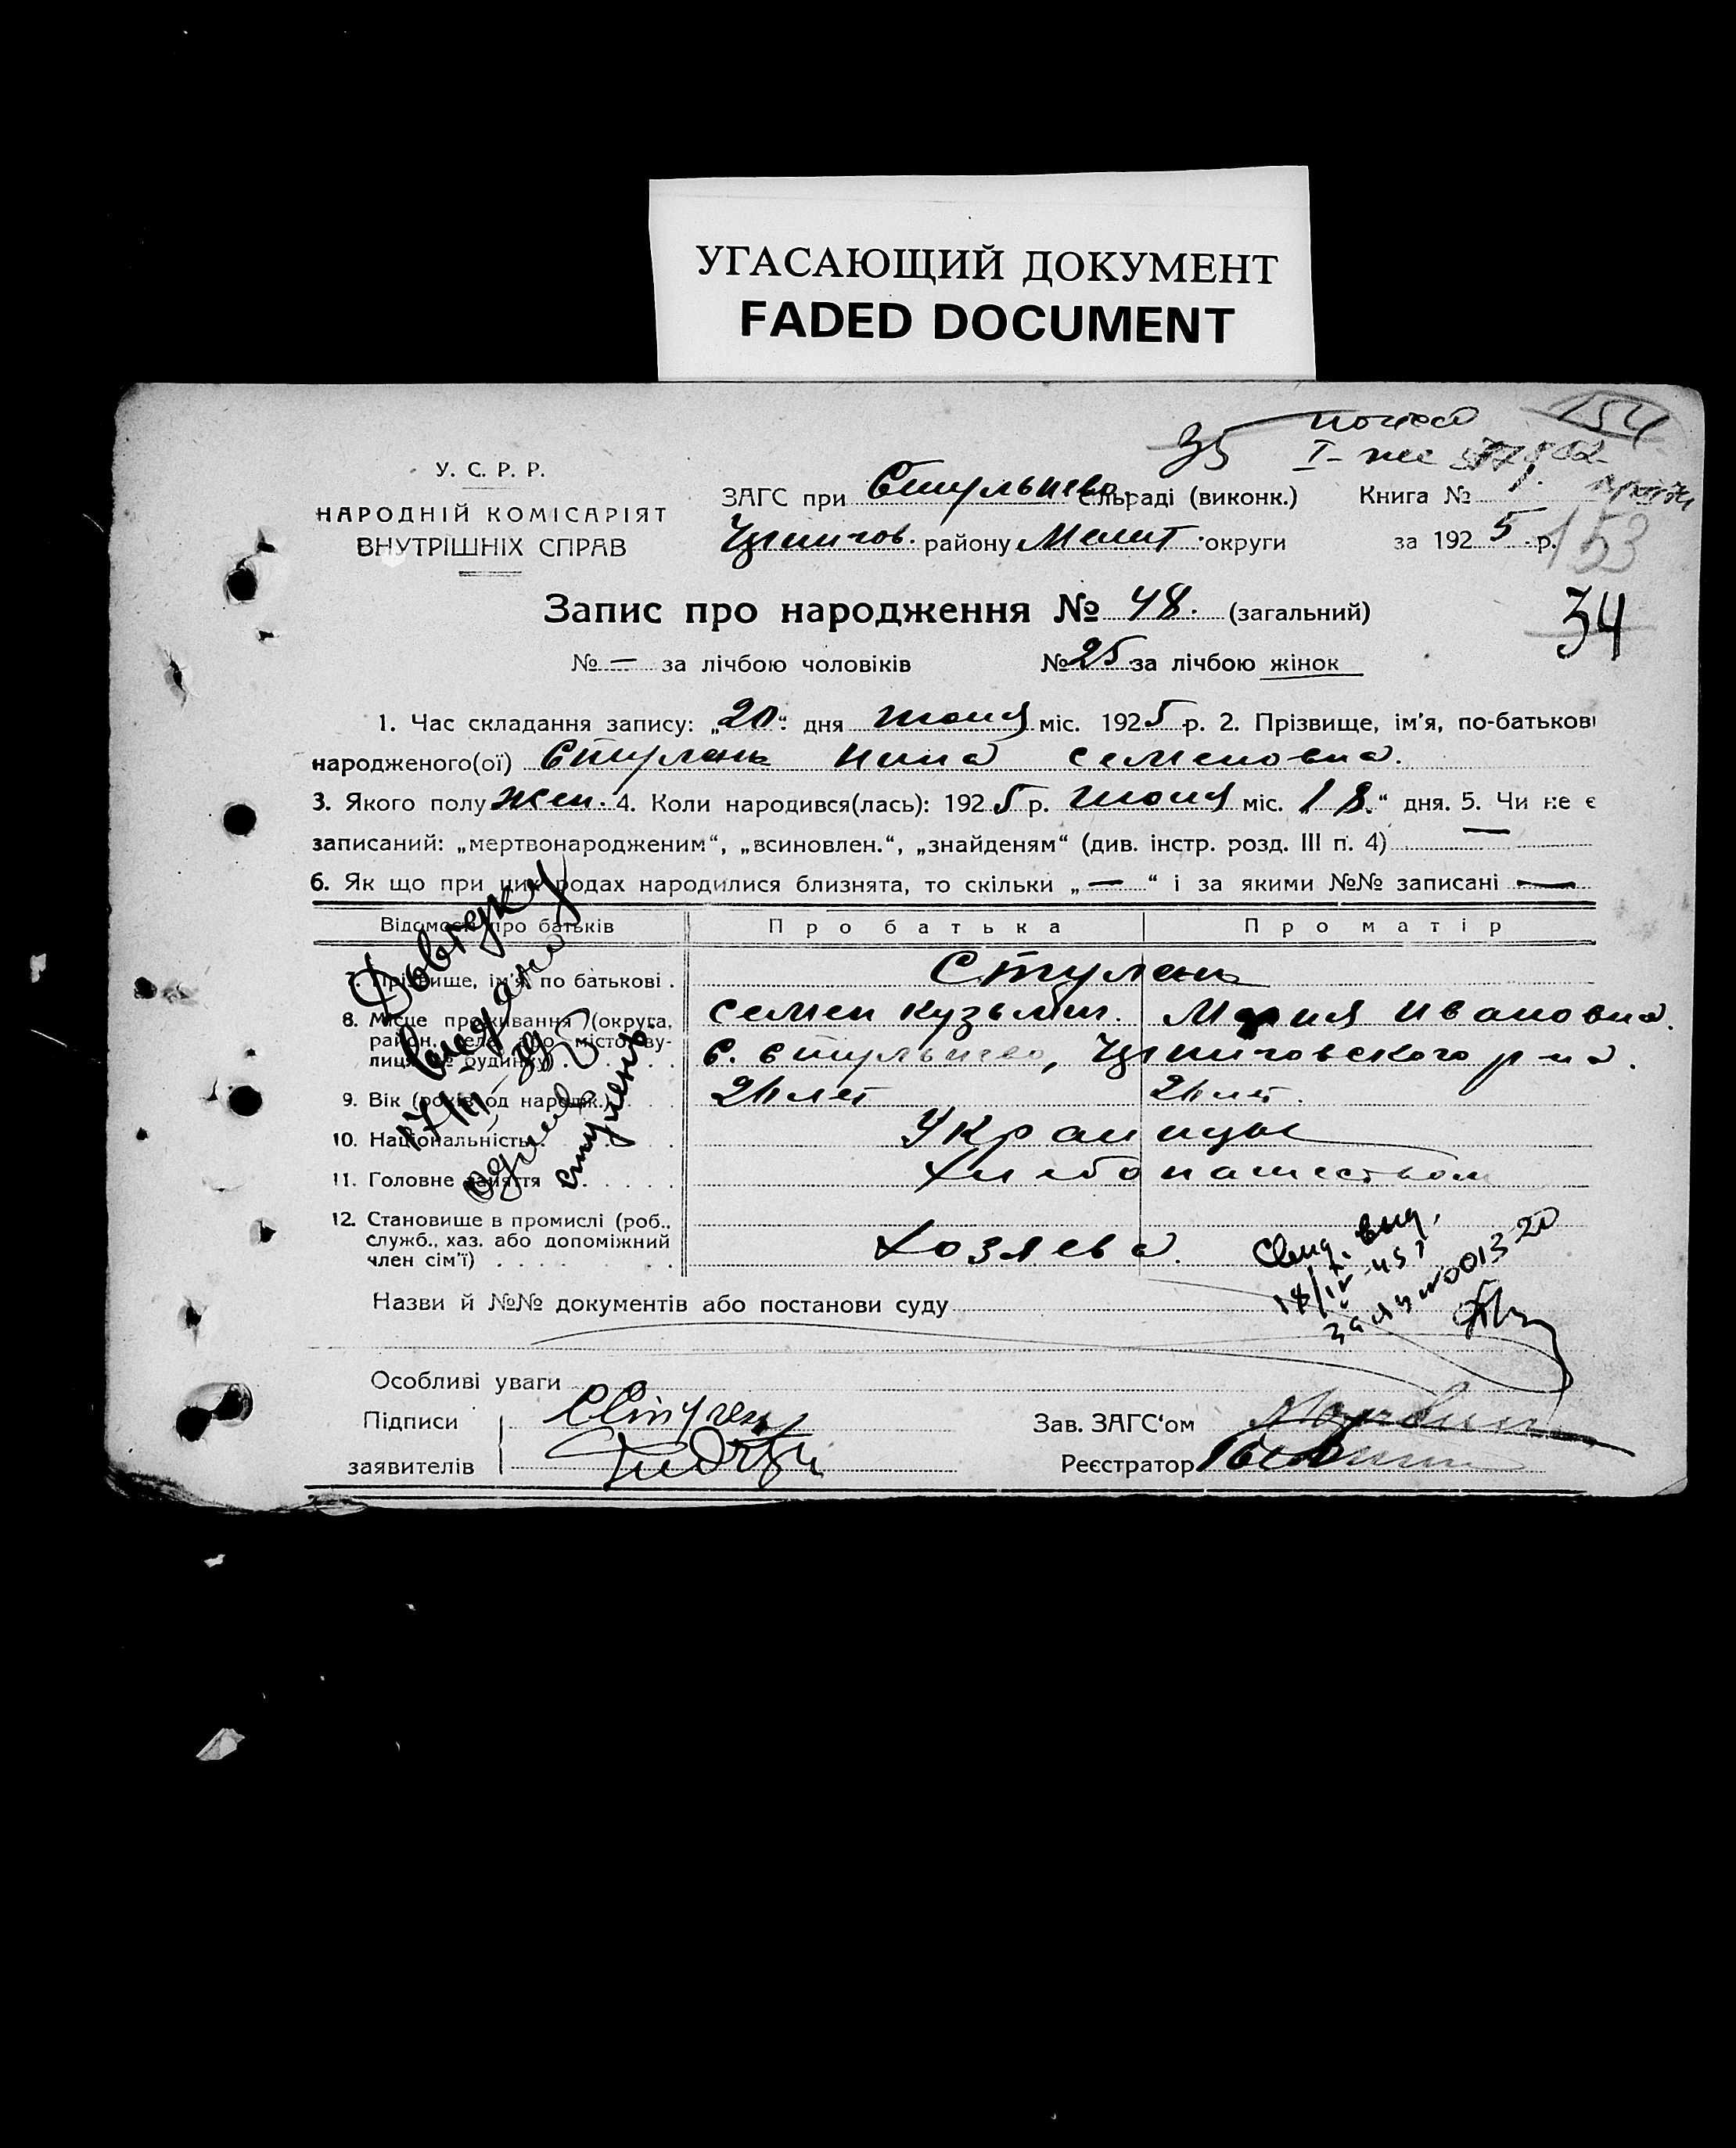 УГАСАЮЩИЙ ДОКУМЕНТ
FADED DOCUMENT
154
35
I-
У. С. Р. Р.
НАРОДНІЙ КОМІСАРІЯТ
ВНУТРІШНІХ СПРАВ
ЗАГС при Стульнево сільраді (виконк.) Книга № 1.
району Мелит. округи за 1925 р.
153
Запис про народження № 48. (загальний)
34
№ — за лічбою чоловіків № 25 за лічбою жінок
1. Час складання запису: „20“ дня июня міс. 1925 р. 2. Прізвище, ім'я, по-батькові
народженого(ої) Стулень Нина Семеновна.
3. Якого полу жен. 4. Коли народився(лась): 1925 р. июня міс. „18.“ дня. 5. Чи не є
записаний: „мертвонародженим“, „всиновлен.“, „знайденям“ (див. інстр. розд. III п. 4) —
6. Як що при цих родах народилися близнята, то скільки „—“ і за якими №№ записані —
Відомости про батьків Про батька Про матір
7. Прізвище, ім'я, по батькові . Стулень
Семен Кузьмич. Мария Ивановна.
8. Місце проживання (округа,
район, село або місто, вулиця, № будинку) с. Стульнево, р-на.
9. Вік (років од народж.) лет лет.
10. Національність Украинцы
11. Головне заняття Хлебопашеством
12. Становище в промислі (роб.,
служб., хаз. або допоміжний
член сім'ї) Хозяева.
Довідку
видано
ступень
Свид. выд.
18/IV-45 г
за № 001320
Назви й №№ документів або постанови суду
Особливі уваги
Підписи
заявителів
Зав. ЗАГС'ом
Реєстратор